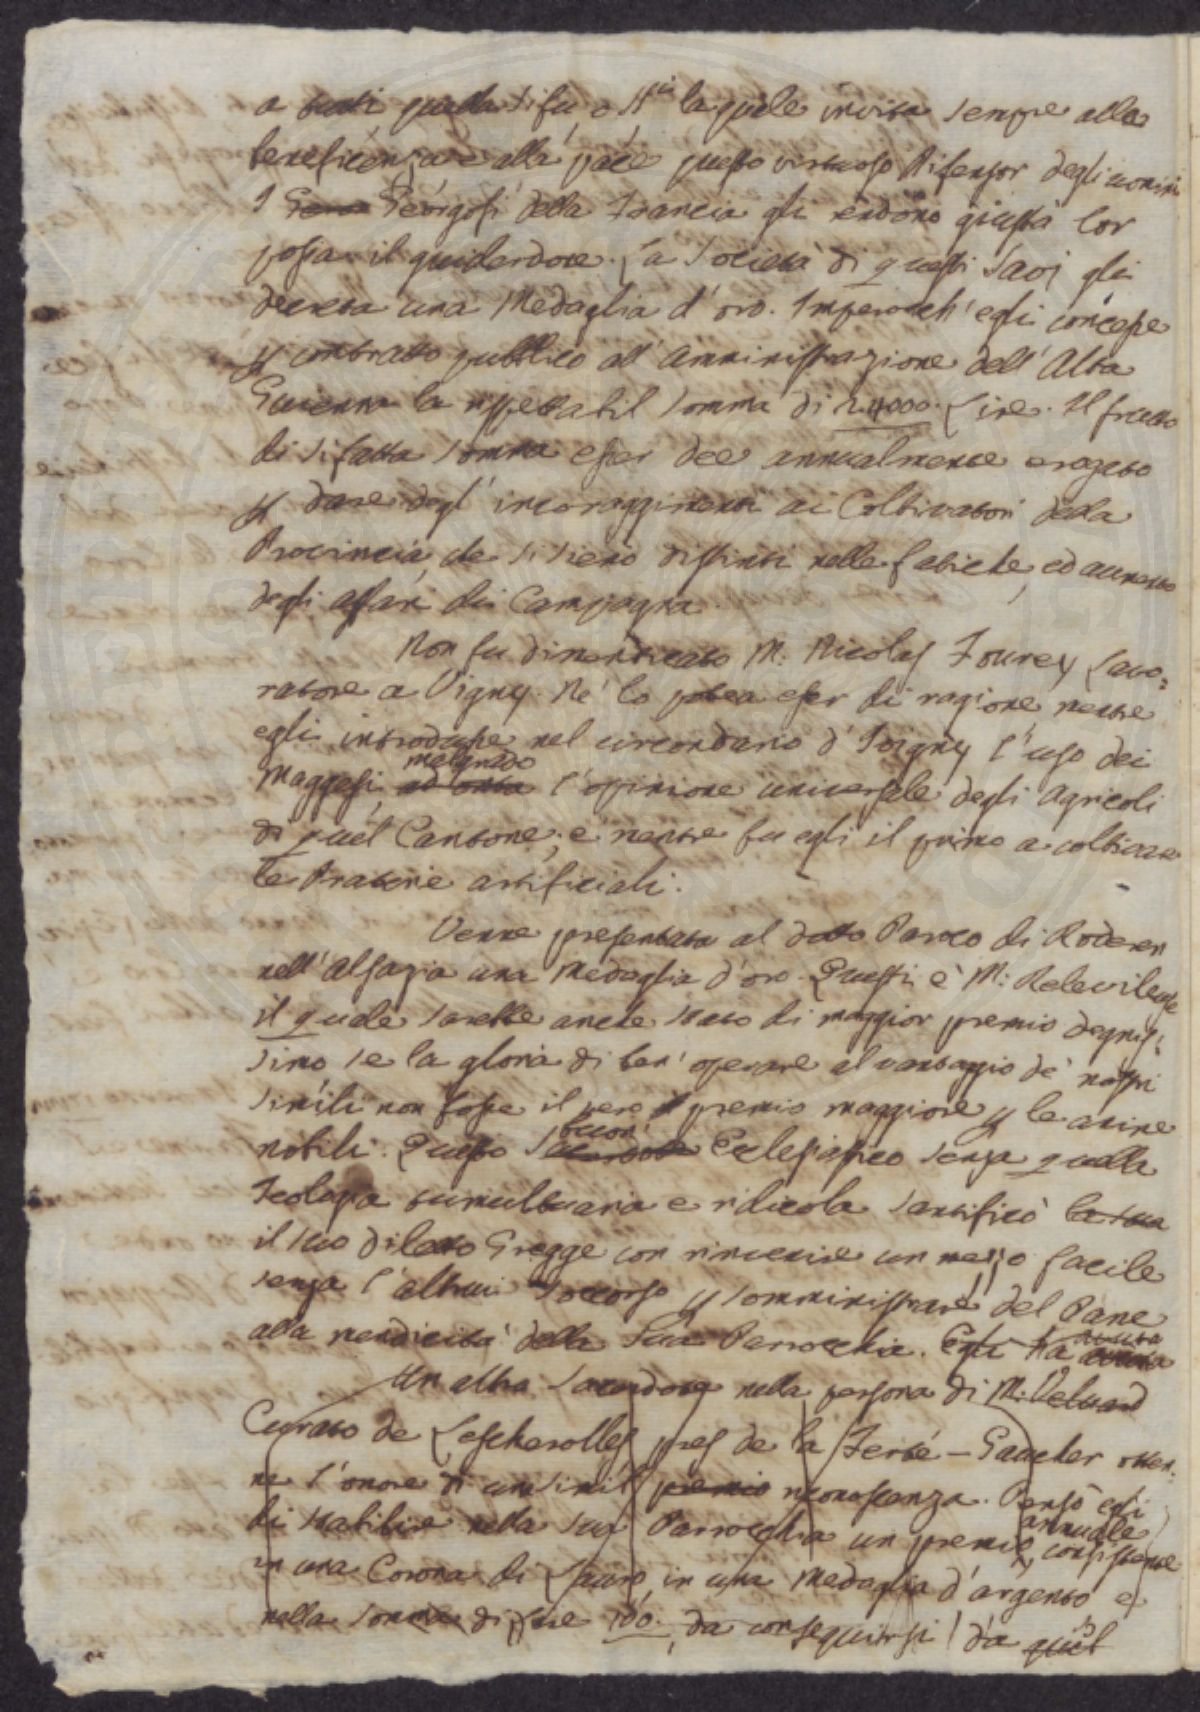 a tutti quella si fu o Sti la quale invita sempre alla
beneficenza e alla pace questo virtuoso Difensor degli uomini
I Georgofi della Francia gli rendono giusta lor
possa il guiderdone. La Società di questi Savj gli
decreta una Medaglia d'oro. Imperoch' egli concesse
p contratto pubblico all' Amministrazione dell' Alta
Guienna la rispettabil somma di 24000. Lire. Il frutto
di sifatta somma esser dee annualmente erogato
p dare degl' incoraggimenti ai Coltivatori della
Provincia che si sieno distinti nelle fatiche, ed aumento
degli affari di Campagna.
Non fu dimenticato M: Nicolas Fourey Lavo:
ratore a Vigny. Ne' lo potea esser di ragione mentre
egli introdusse nel circondario d' Joigny l'uso dei
malgrado
Maggesi ad onta l'opinione universale degli Agricoli
di quel Cantone, e mentre fu egli il primo a coltivare
le Praterie artificiali.
Venne presentata al dotto Paroco di Roderen
nell' Alsazia una Medaglia d'oro. Questi è M:
il quale sarebbe anche stato di maggior premio degnis:
simo se la gloria di ben' operare al vantaggio de' nostri
simili non fosse il vero premio maggiore p le anime
buon
nobili. Questo Sacerdote Ecclesiastico senza quella
Teologia tumultuaria e ridicola santificò la sua
il suo diletto Gregge con rinvenire un mezzo facile
senza l'altrui Soccorso p somministrare del Pane
alla mendicità della sua Parrocchia. Egli ha
Un altro Sacerdote nella persona di M: Veluard
Curato de Lescherolles pres de la Ferté - Gaucher otten:
ne l'onore di un simil premio riconoscenza. Pensò egli
annuale
di stabilire nella sua Parrocchia un premio, consistente
in una Corona di Lauro, in una Medaglia d'argento e
nella somma di Lire 160. da conseguirsi da quel